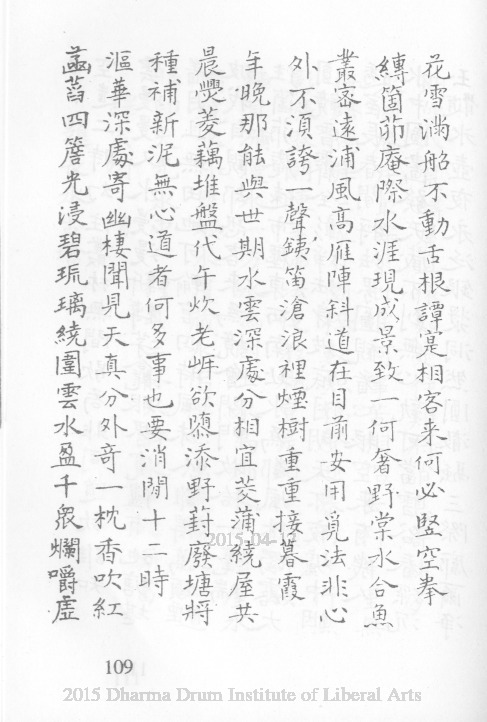 花雪滿船不動舌根譚寔相客来何必竪空拳
縛箇茆庵際水涯現成景致一何奢野棠水合魚
叢密遠浦風高雁陣斜道在目前安用覓法非心
外不須誇一聲鐵笛滄浪裡煙樹重重接暮霞
年晚那能與世期水雲深處分相宜茭蒲繞屋共
晨爨菱藕堆盤代午炊老岸欲隳添野葑廢塘將
種補新泥無心道者何多事也要消閒十二時
漚華深處寄幽棲聞見天真分外奇一枕香吹紅
菡萏四簷光浸碧琉璃繞圍雲水盈千衆爛嚼虛
2015-04-
109
2015 Dharma Drum Institute of Liberal Arts